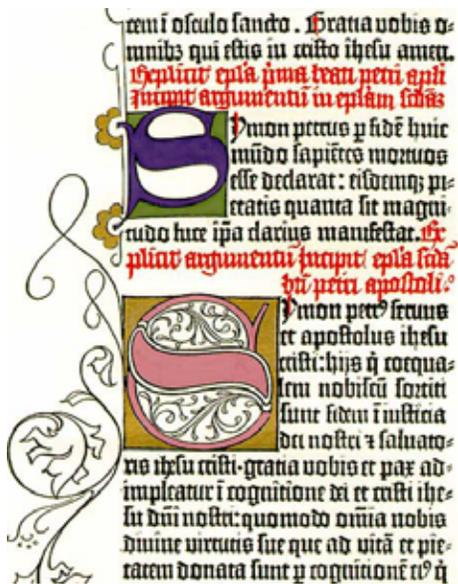 cem ī osculo sancto. Gratia vobis o-
mnibꝫ qui estis in cristo ihesu amen.
Explicit ep̄la p̄ma beati petri ap̄li
Incipit argumentū in ep̄lam sc̄daꝫ
Symon petrus ꝑ fidē huic
mūdo sapiētes mortuos
esse declarat: eisdemqꝫ pi-
etatis quanta sit magni-
tudo luce ip̄a clarius manifestat. Ex-
plicit argumentū Incipit ep̄la sc̄da
bt̄i petri apostoli.
Symon petrꝰ servus
et apostolus ihesu
cristi: hijs q̄ coequa-
lem nobiscū sortiti
sunt fidem ī iusticia
dei nostri ⁊ salvato-
ris ihesu cristi. gratia vobis et pax ad-
impleatur ī cognitione dei et cristi ihe-
su dn̄i nostri: quomodo om̄ia nobis
divine virtutis sue que ad vitā et pie-
tatem donata sunt ꝑ cognitionē eiꝰ q̄